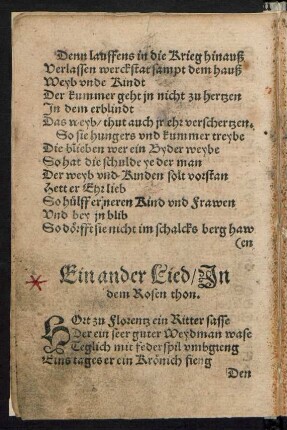 Denn lauffens in die Krieg hinauß
Verlassen werckstat sampt dem hauß
Weyb vnde Kindt
Der kummer geht jn nicht zu hertzen
In dem erblindt
Das weyb/ thut auch jr ehr verschertzen.
So sie hungers vnd kummer treybe
Die blieben wer ein Byder weybe
So hat die schulde ye der man
Der weyb vnd Kinden solt vorstan
Hett er Ehr lieb
So hülff erneren Kind vnd Frawen
Vnd bey jn blib
So dörfft sie nicht im schalcks berg haw
(en
Ein ander Lied/ In
dem Rosen thon.
HOrt zu Florentz ein Ritter sasse
Der ein seer guter Weydman wase
Teglich mit federspil vmbgieng
Eins tages er ein Krönich fieng
Den